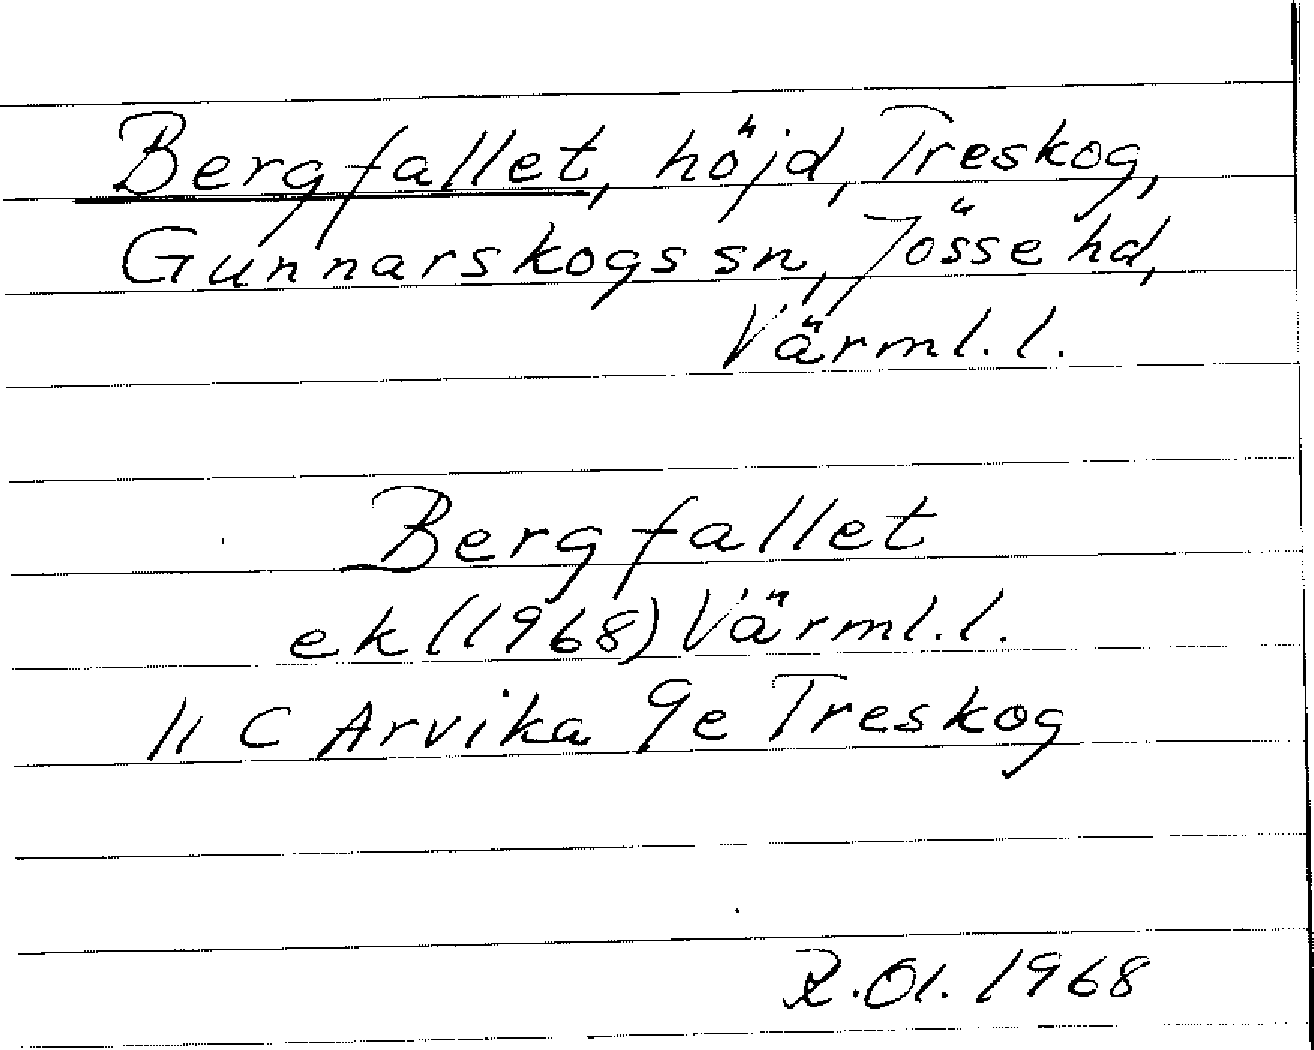 Bergfallet, höjd, Treskog,
Gunnarskogs sn, Jösse hd,
Värml. l.
Bergfallet
ek (1968) Värml. l.
11 C Arvika 9e Treskog
R. Ol. 1968